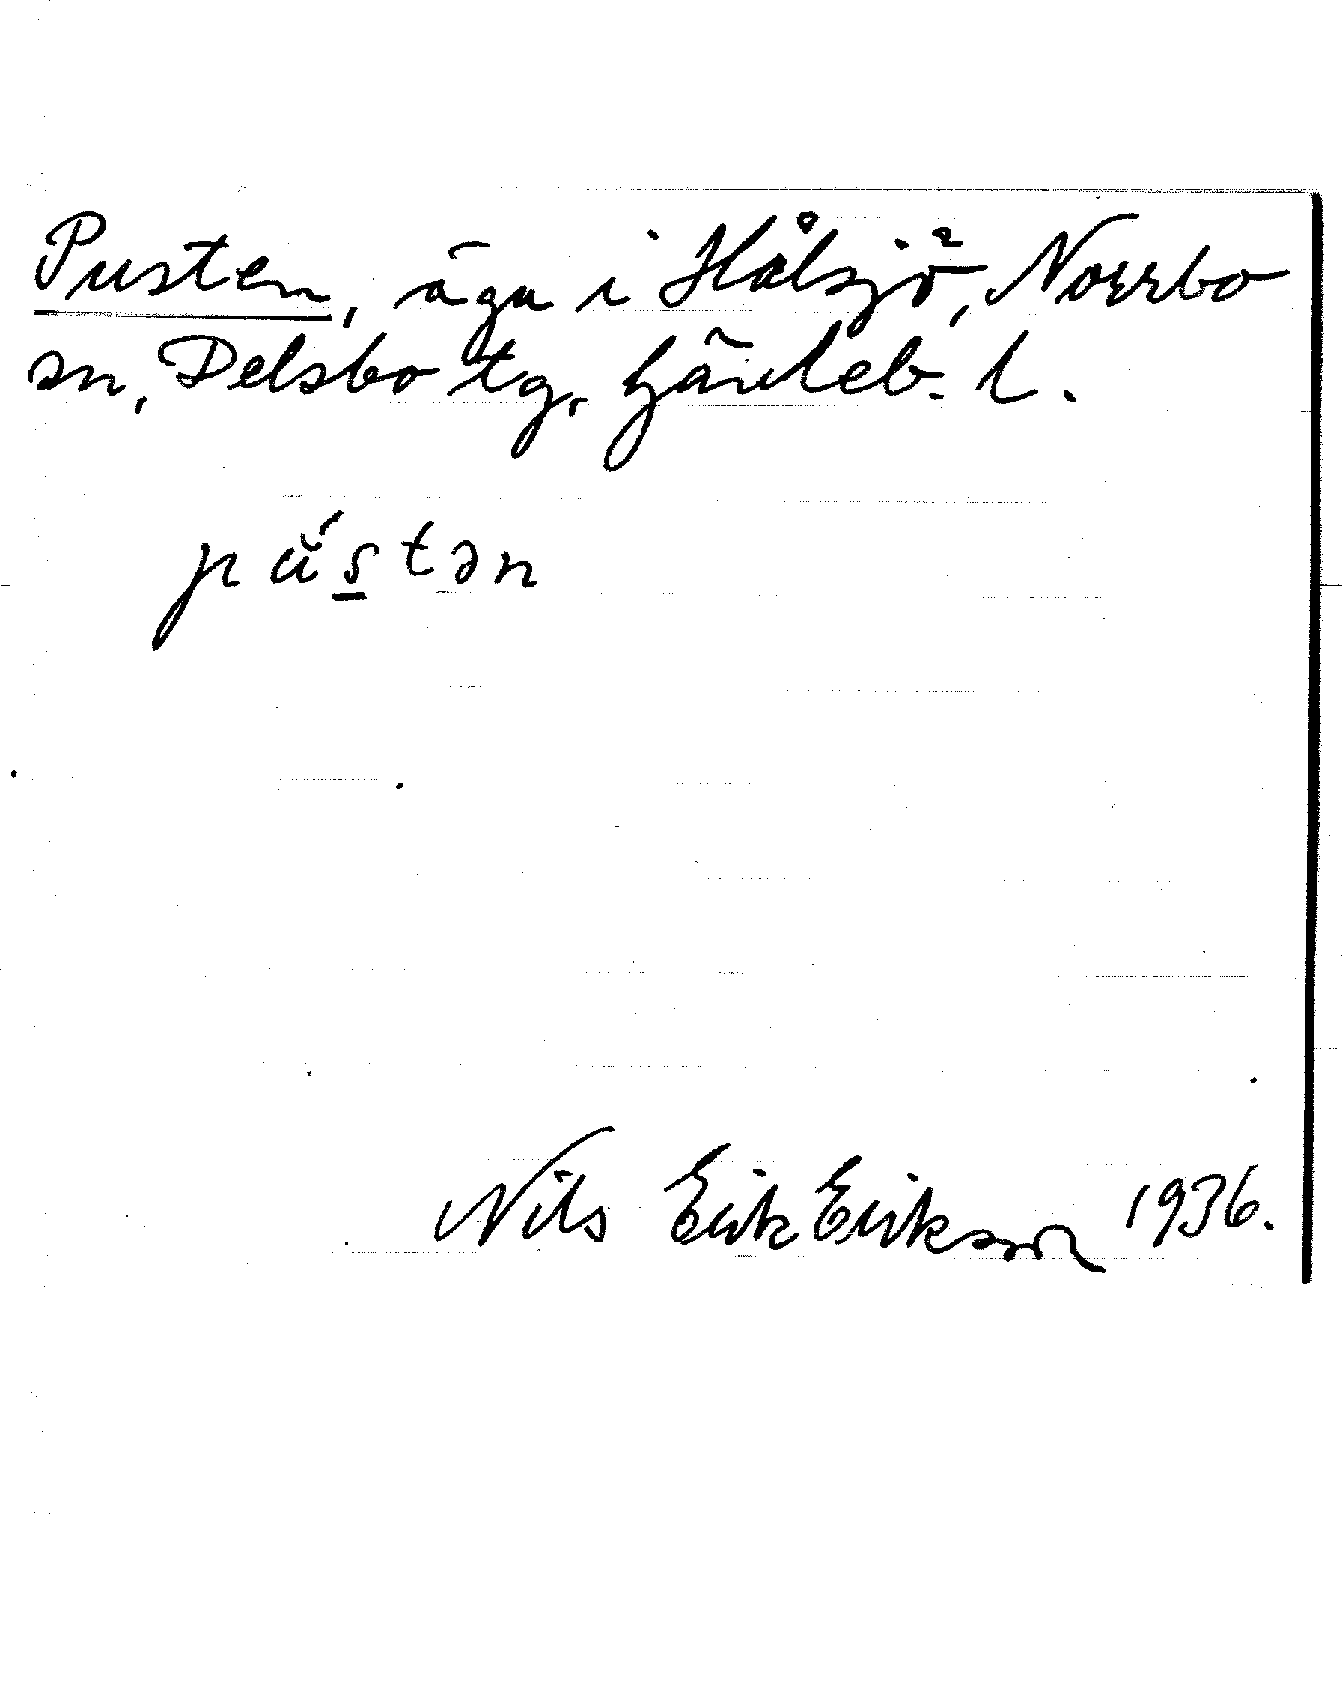 Pusten, äga i Hålsjö, Norrbo
sn, Delsbo tg, Gävleb. l.
pŭ́s̲tən
Nils Erik Erikson 1936.